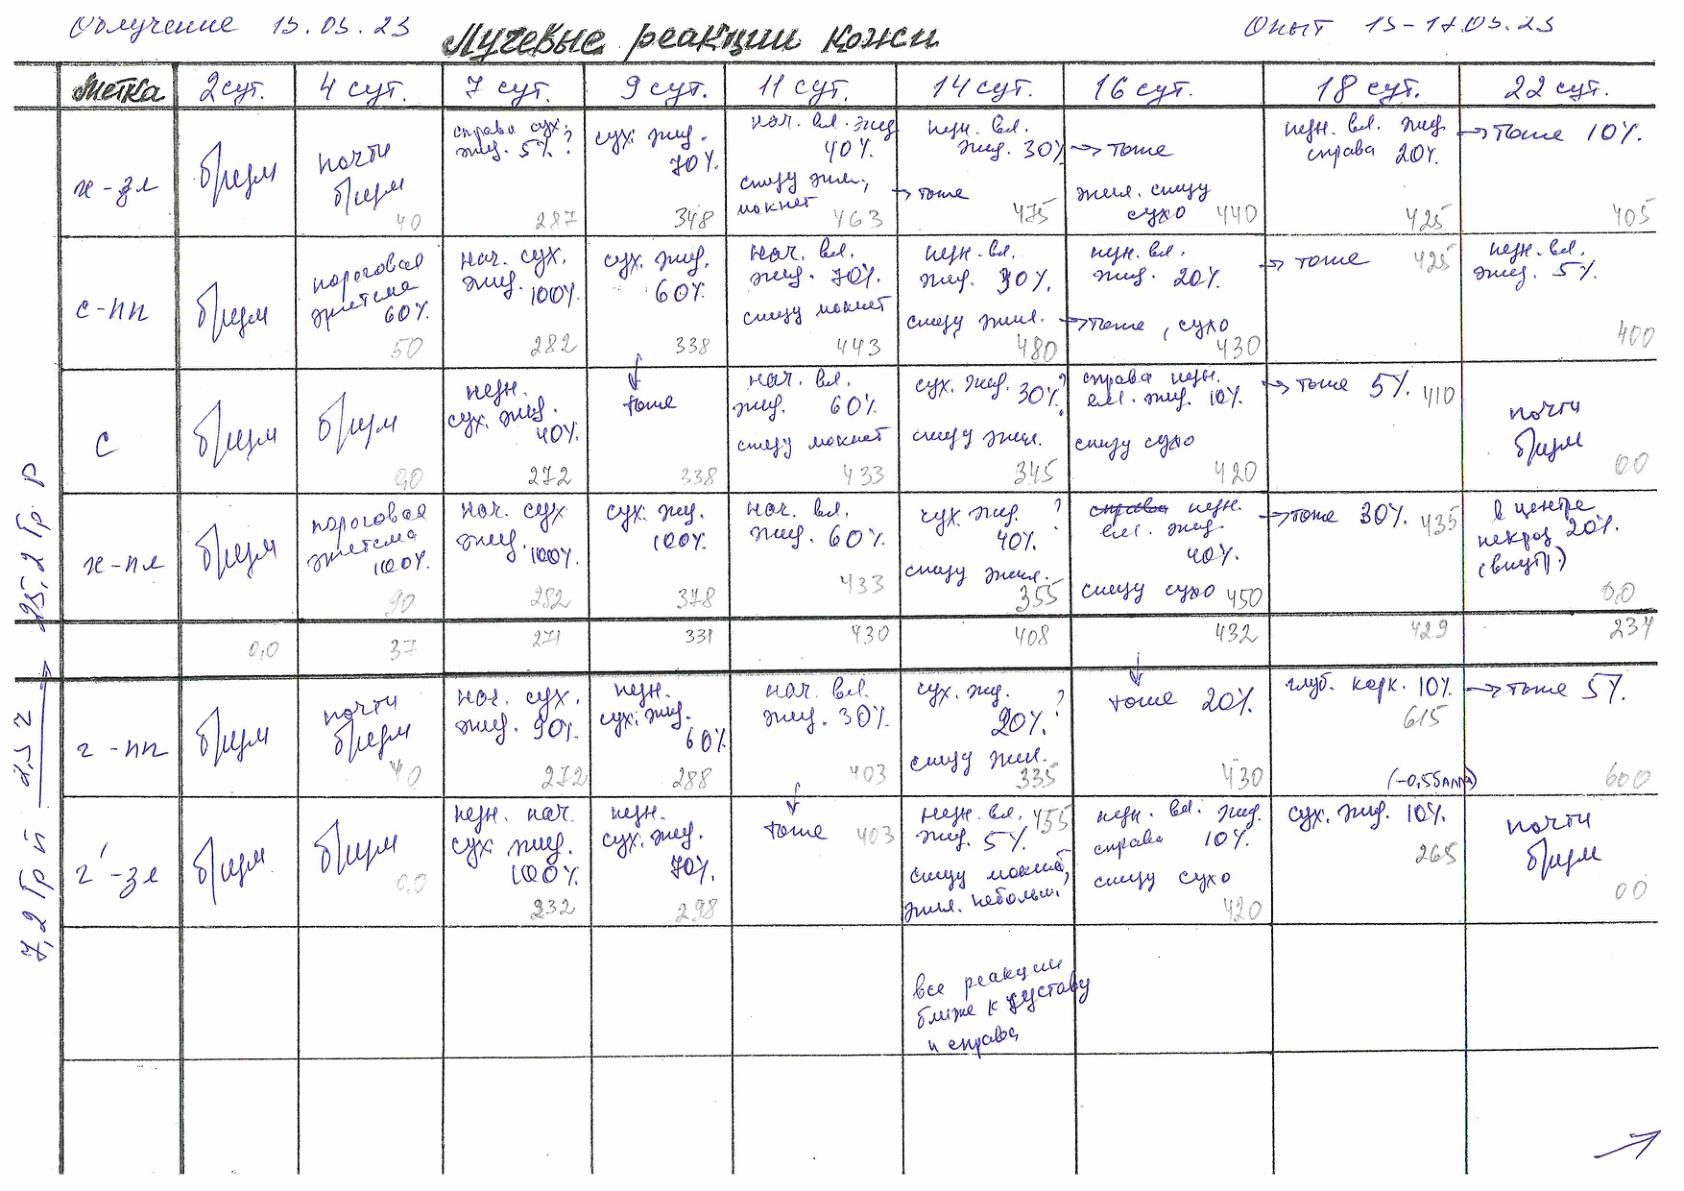 Облучение 15.05.23
Лучевые реакции кожи
Опыт 15-17.05.23
Метка 2 сут. 4 сут. 7 сут. 9 сут. 11 сут. 14 сут. 16 сут. 18 сут. 22 сут.
ж-зл
б/изм
почти
б/изм
40
справа сух.
эпид. 5%?
287
сух. эпид.
70%
348
нач. вл. эпид
40%
снизу
мокнет
463
незн. вл.
эпид. 30%
→ тоже
475
→ тоже
снизу
сухо 440
незн. вл. эпид
справа 20%
425
→ тоже 10%
405
с-пп
б/изм
пороговая
эритема
60%
50
нач. сух.
эпид.
100%
282
сух. эпид.
60%
338
нач. вл.
эпид. 70%
снизу мокнет
443
незн. вл.
эпид. 30%
снизу
480
незн. вл.
эпид. 20%
→ тоже, сухо
430
→ тоже 425
незн. вл.
эпид. 5%
400
с
б/изм
б/изм
0,0
незн.
сух. эпид.
40%
272
↓
тоже
338
нач. вл.
эпид. 60%
снизу мокнет
433
сух. эпид. ?
30%
снизу
345
справа незн.
вл. эпид. 10%
снизу сухо
420
→ тоже 5% 410
почти
б/изм
00
ж-пл
б/изм
пороговая
эритема
100%
90
нач. сух
эпид.
100%
282
сух. эпид.
100%
378
нач. вл.
эпид. 60%
433
сух. эпид. ?
40%
снизу
355
справа незн.
вл. эпид.
40%
снизу сухо 450
→ тоже 30% 435
в центре
некроз 20%
(внутр.)
0,0
0,0 37 271 331 430 408 432 429 234
г-пп
б/изм
почти
б/изм
40
нач. сух.
эпид. 90%
272
незн.
сух. эпид.
60%
288
нач. вл.
эпид. 30%
403
сух. эпид. ?
20%
снизу
335
↓
тоже 20%
430
глуб. корк. 10%
615
→ тоже 5%
600
г'-зл
б/изм
б/изм
0,0
незн. нач.
сух. эпид.
100%
232
незн.
сух. эпид.
70%
298
↓
тоже 403
незн. вл. 455
эпид. 5%
снизу мокнет,
небольш.
незн. вл. эпид.
справа 10%
снизу сухо
420
сух. эпид. 10%
265
почти
б/изм
00
все реакции
ближе к суставу
и справа
7,2 Гр n 2,5 2 → 25,2 Гр p